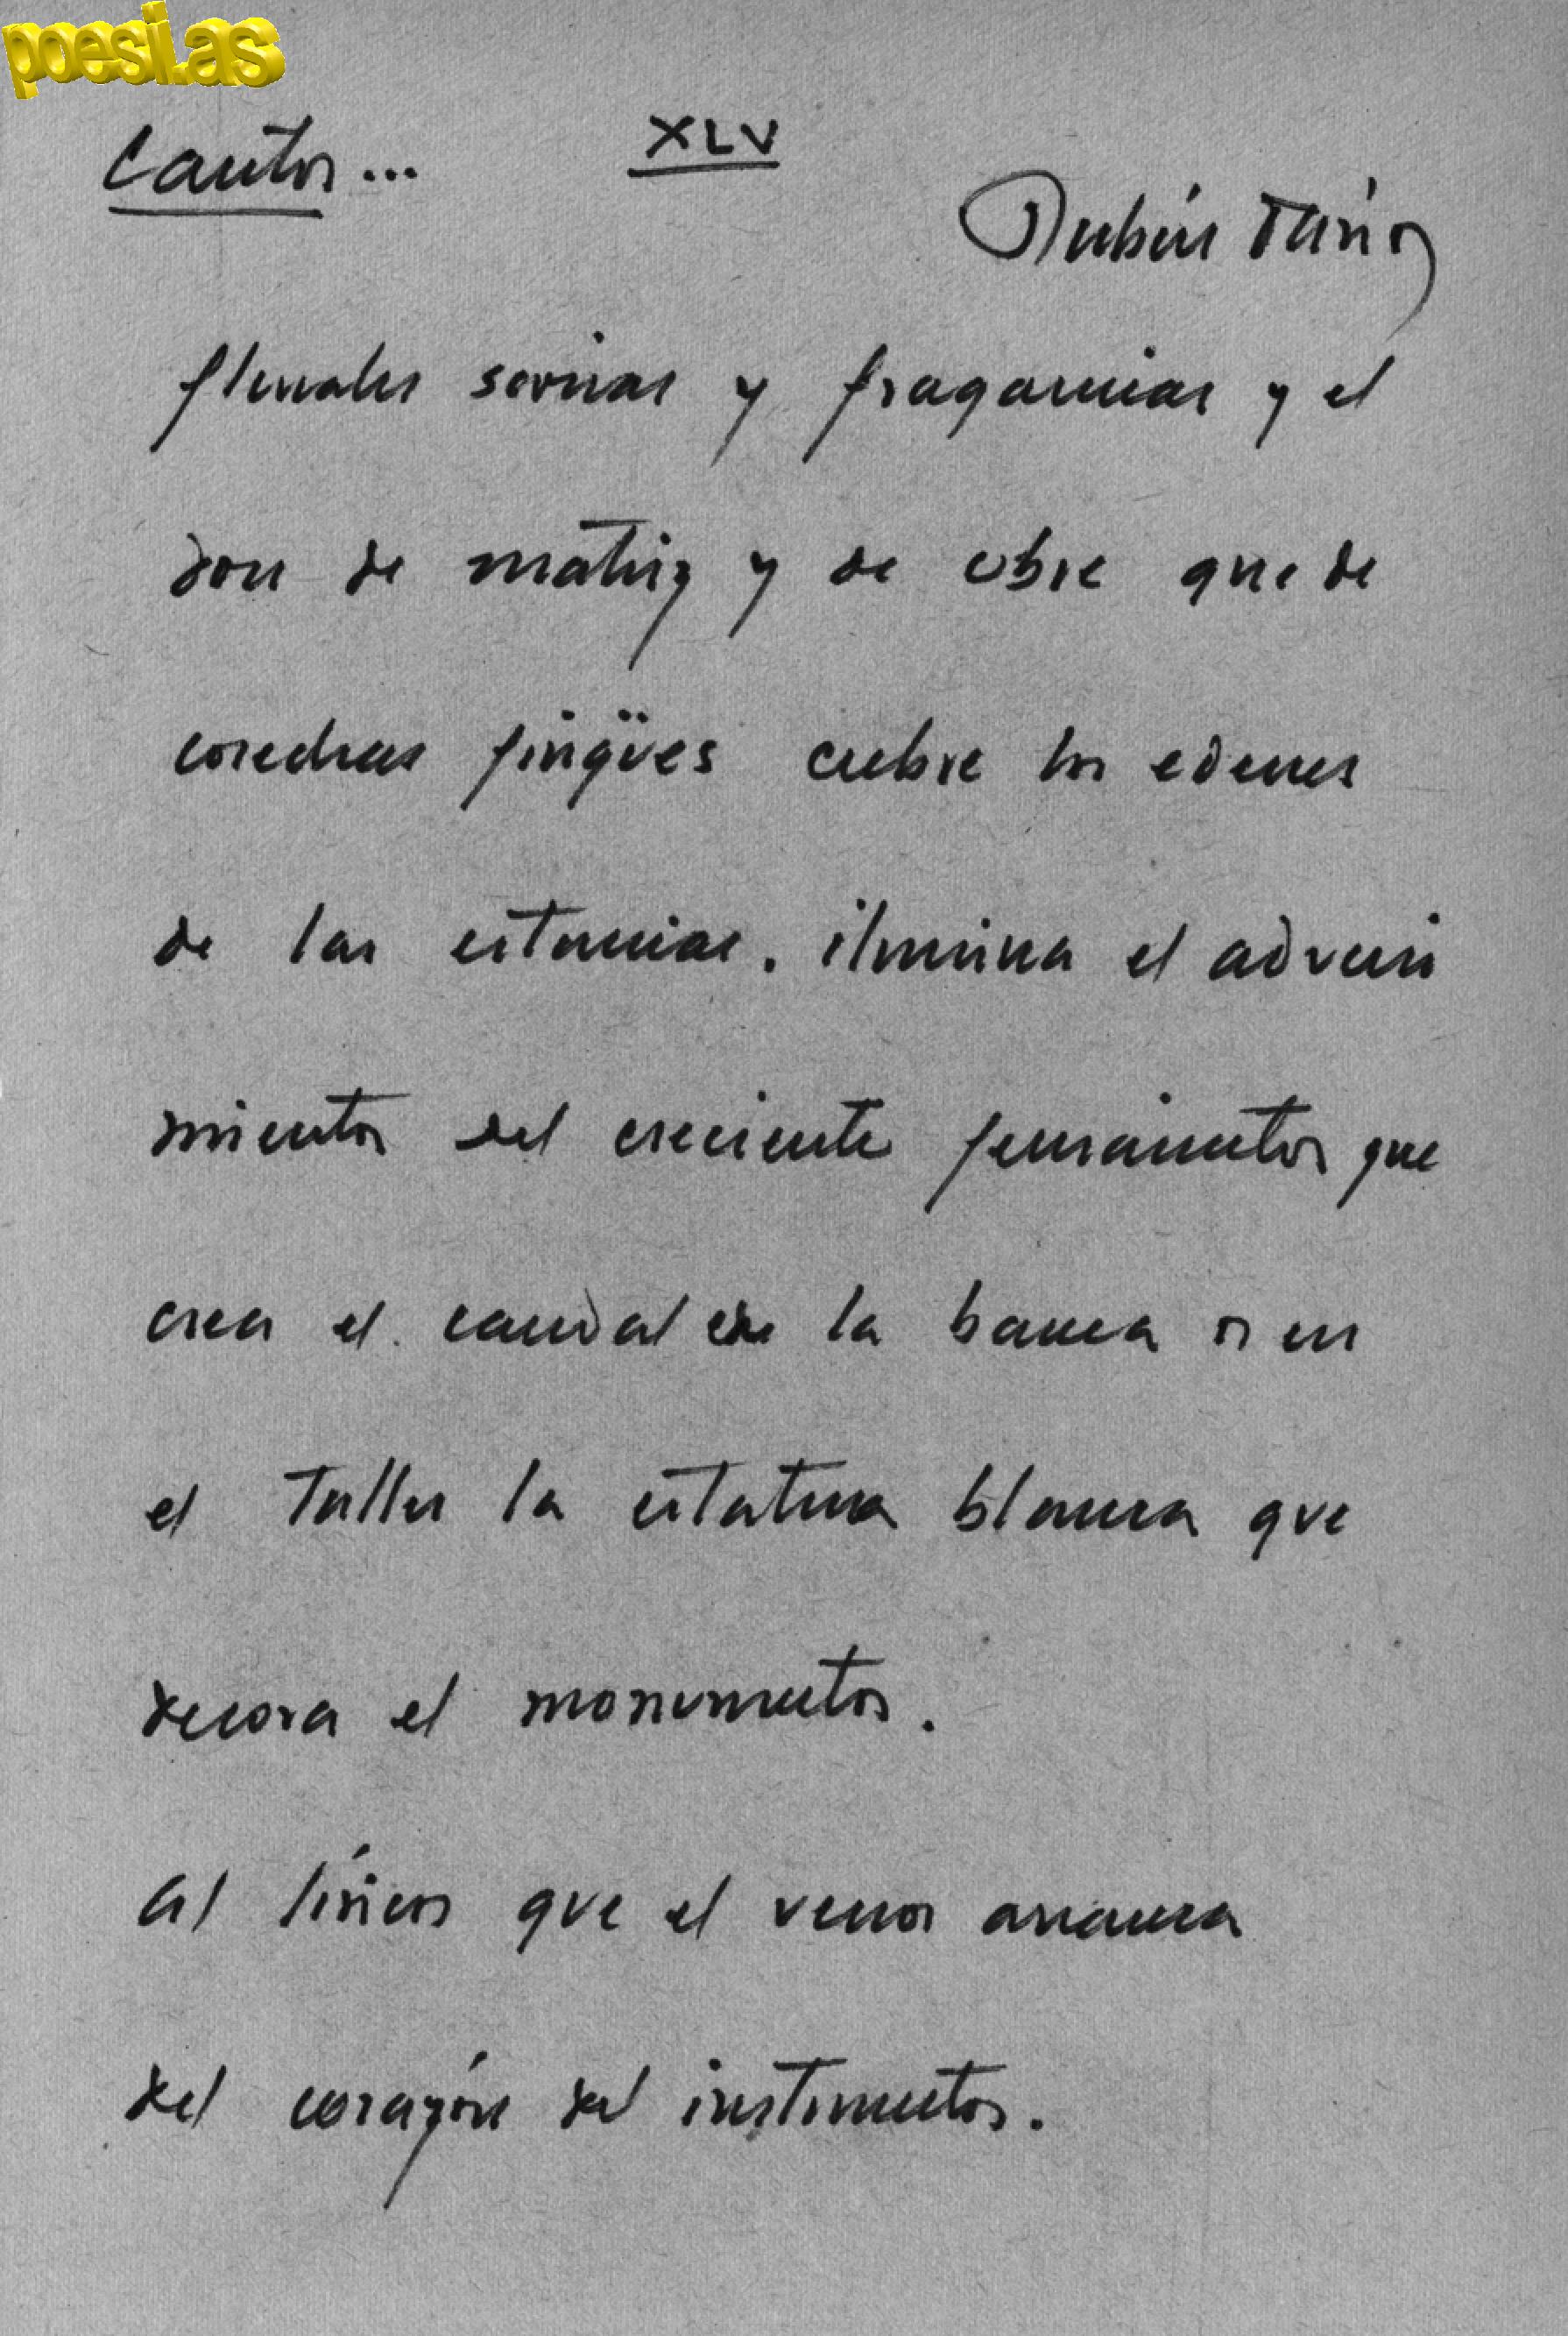 poesi.as
Cantos... XLV
Rubén Darío
florales savias y fragancias y el
don de matriz y de ubre que de
cosechas pingües cubre los edenes
de las estancias. ilumina el adveni
miento del creciente pensamiento que
crea el caudal de la banca o en
el taller la estatua blanca que
decora el monumento.
al lírico que el verso arranca
del corazón del instrumento.